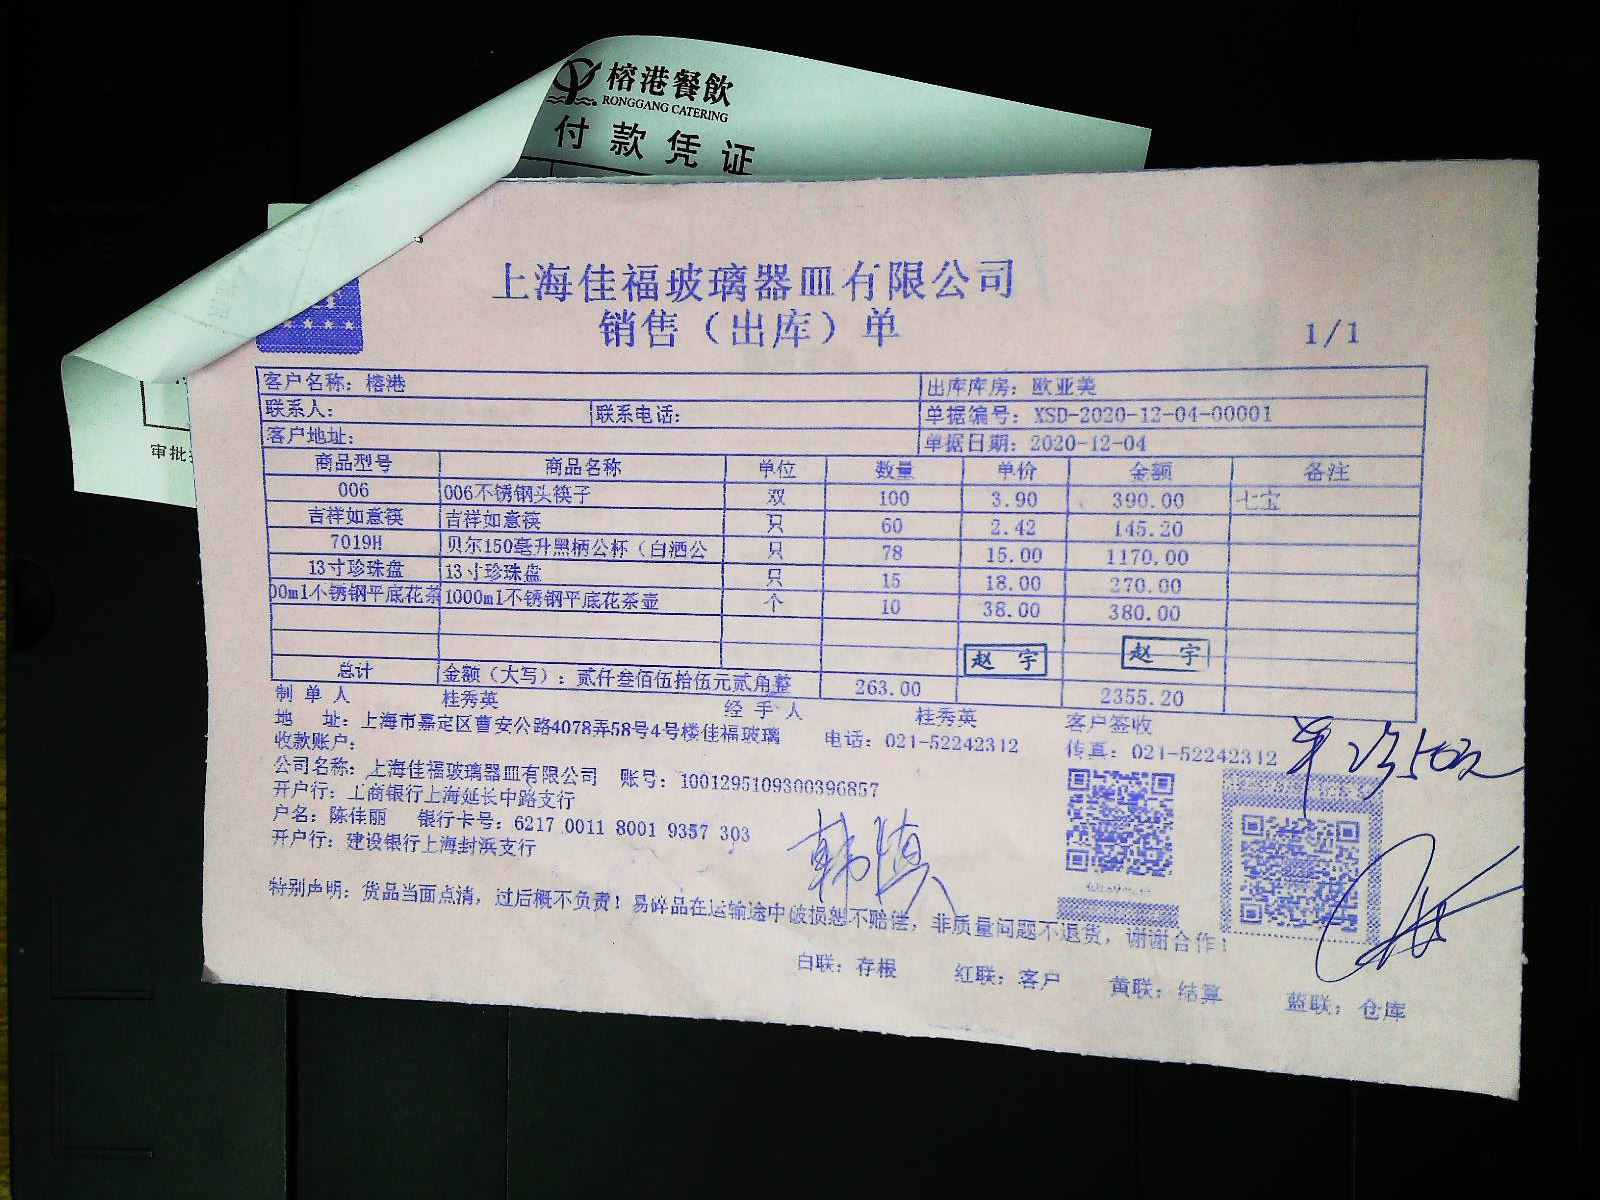 榕港餐飲
RONGGANG CATERING
付款凭证
审批
上海佳福玻璃器皿有限公司
销售（出库）单
1/1
客户名称：榕港 出库库房：欧亚美
联系人： 联系电话： 单据编号：XSD-2020-12-04-00001
客户地址： 单据日期：2020-12-04
商品型号 商品名称 单位 数量 单价 金额 备注
006 006不锈钢头筷子 双 100 3.90 390.00 七宝
吉祥如意筷 吉祥如意筷 只 60 2.42 145.20
7019H 贝尔150毫升黑柄公杯（白酒公 只 78 15.00 1170.00
13寸珍珠盘 13寸珍珠盘 只 15 18.00 270.00
00ml不锈钢平底花茶 1000ml不锈钢平底花茶壶 个 10 38.00 380.00
赵宇 赵宇
总计 金额（大写）：贰仟叁佰伍拾伍元贰角整 263.00 2355.20
制单人 桂秀英 经手人 桂秀英 客户签收
地 址：上海市嘉定区曹安公路4078弄58号4号楼佳福玻璃 电话：021-52242312 传真：021-52242312
收款账户：
公司名称：上海佳福玻璃器皿有限公司 账号：1001295109300396857
开户行：工商银行上海延长中路支行
户名：陈佳丽 银行卡号：6217 0011 8001 9357 303
开户行：建设银行上海封浜支行
特别声明：货品当面点清，过后概不负责！易碎品在运输途中破损恕不赔偿，非质量问题不退货，谢谢合作！
白联：存根 红联：客户 黄联：结算 蓝联：仓库